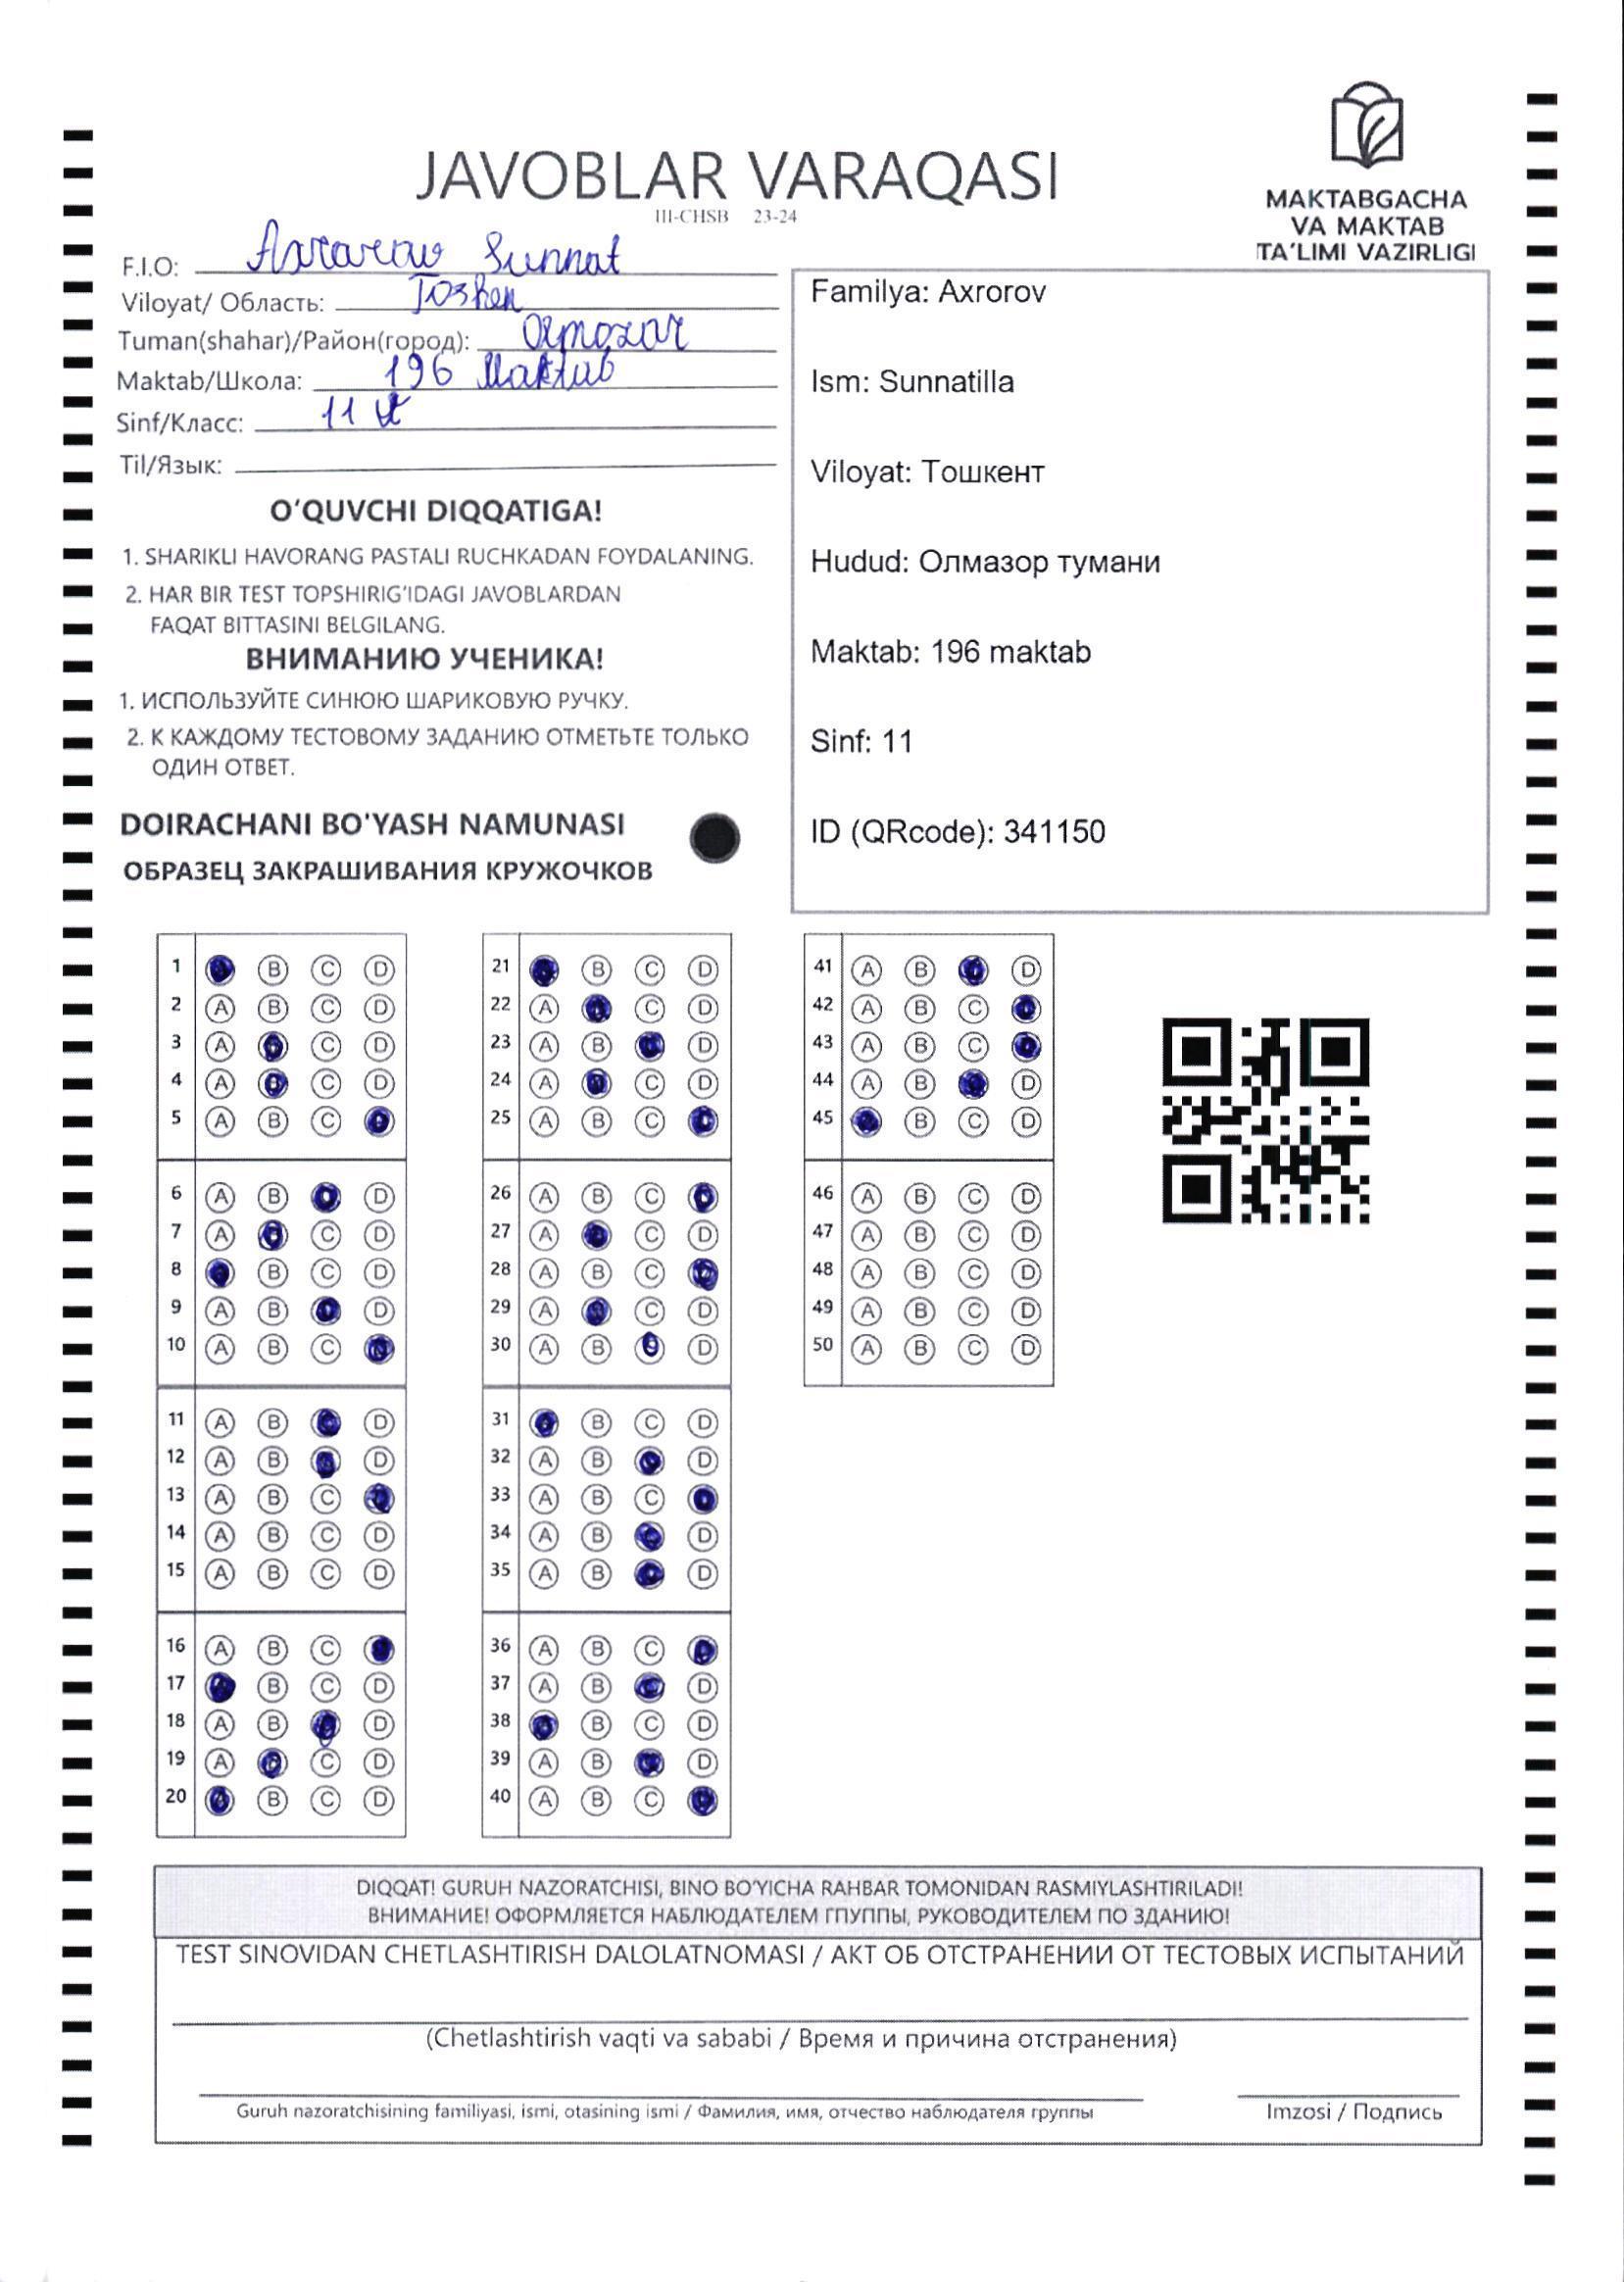 JAVOBLAR VARAQASI
III-CHSB 23-24
MAKTABGACHA
VA MAKTAB
TA'LIMI VAZIRLIGI
F.I.O: Axrarow Sunnat
Viloyat/ Область: Toshken
Tuman(shahar)/Район(город): Olmozor
Maktab/Школа: 196 Maktab
Sinf/Класс: 11
Til/Язык:
O'QUVCHI DIQQATIGA!
1. SHARIKLI HAVORANG PASTALI RUCHKADAN FOYDALANING.
2. HAR BIR TEST TOPSHIRIG'IDAGI JAVOBLARDAN
FAQAT BITTASINI BELGILANG.
ВНИМАНИЮ УЧЕНИКА!
1. ИСПОЛЬЗУЙТЕ СИНЮЮ ШАРИКОВУЮ РУЧКУ.
2. К КАЖДОМУ ТЕСТОВОМУ ЗАДАНИЮ ОТМЕТЬТЕ ТОЛЬКО
ОДИН ОТВЕТ.
DOIRACHANI BO'YASH NAMUNASI
ОБРАЗЕЦ ЗАКРАШИВАНИЯ КРУЖОЧКОВ
Familya: Axrorov
Ism: Sunnatilla
Viloyat: Тошкент
Hudud: Олмазор тумани
Maktab: 196 maktab
Sinf: 11
ID (QRcode): 341150
1 B C D
2 A B C D
3 A C D
4 A C D
5 A B C
6 A B D
7 A C D
8 B C D
9 A B D
10 A B C
11 A B D
12 A B D
13 A B C
14 A B C D
15 A B C D
16 A B C
17 B C D
18 A B D
19 A C D
20 B C D
21 B C D
22 A C D
23 A B D
24 A C D
25 A B C
26 A B C
27 A C D
28 A B C
29 A C D
30 A B D
31 B C D
32 A B D
33 A B C
34 A B D
35 A B D
36 A B C
37 A B D
38 B C D
39 A B D
40 A B C
41 A B D
42 A B C
43 A B C
44 A B D
45 B C D
46 A B C D
47 A B C D
48 A B C D
49 A B C D
50 A B C D
DIQQAT! GURUH NAZORATCHISI, BINO BO'YICHA RAHBAR TOMONIDAN RASMIYLASHTIRILADI!
ВНИМАНИЕ! ОФОРМЛЯЕТСЯ НАБЛЮДАТЕЛЕМ ГПУППЫ, РУКОВОДИТЕЛЕМ ПО ЗДАНИЮ!
TEST SINOVIDAN CHETLASHTIRISH DALOLATNOMASI / АКТ ОБ ОТСТРАНЕНИИ ОТ ТЕСТОВЫХ ИСПЫТАНИЙ
(Chetlashtirish vaqti va sababi / Время и причина отстранения)
Guruh nazoratchisining familiyasi, ismi, otasining ismi / Фамилия, имя, отчество наблюдателя группы
Imzosi / Подпись